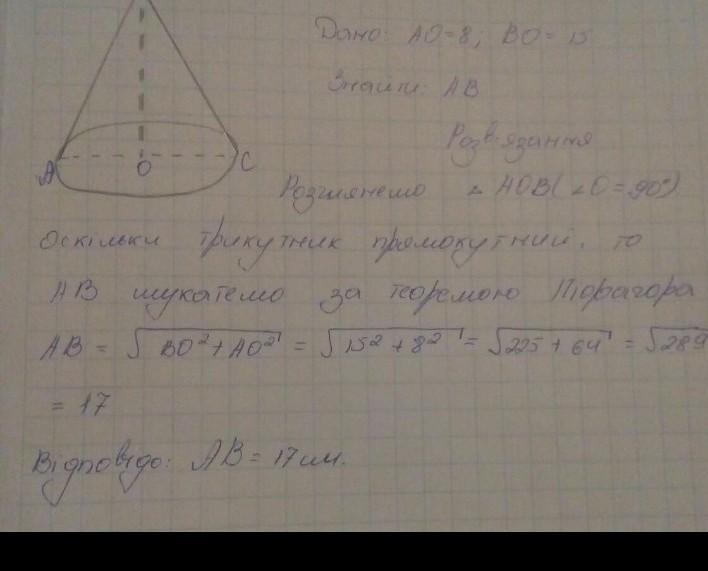 Дано: AO=8; BO=15
Знайти: AB
Розв'язання
A O C
Розглянемо △AOB(∠O=90°)
Оскільки трикутник прямокутний, то
AB шукатемо за теоремою Піфагора
AB = √BO²+AO² = √15²+8² = √225+64 = √289
= 17
Відповідь: AB = 17см.